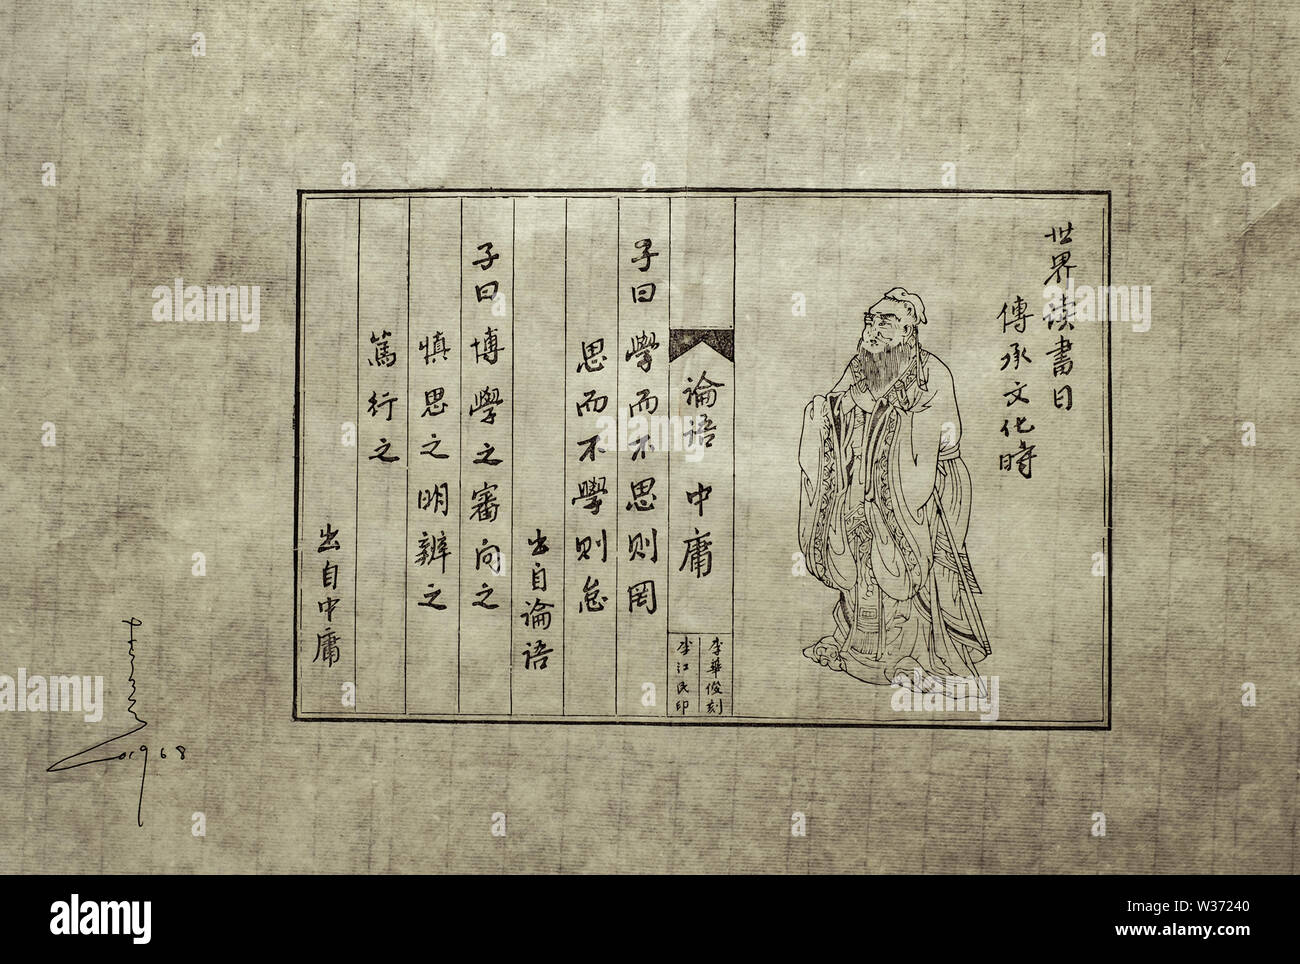 世界读書日
傳承文化時
論語 中庸
李華俊刻
李江民印
子曰學而不思則罔
思而不學則怠
出自論語
子曰博學之審问之
慎思之明辨之
篤行之
出自中庸
1968
alamy
alamy
alamy
alamy
alamy
Image ID: W37240
www.alamy.com